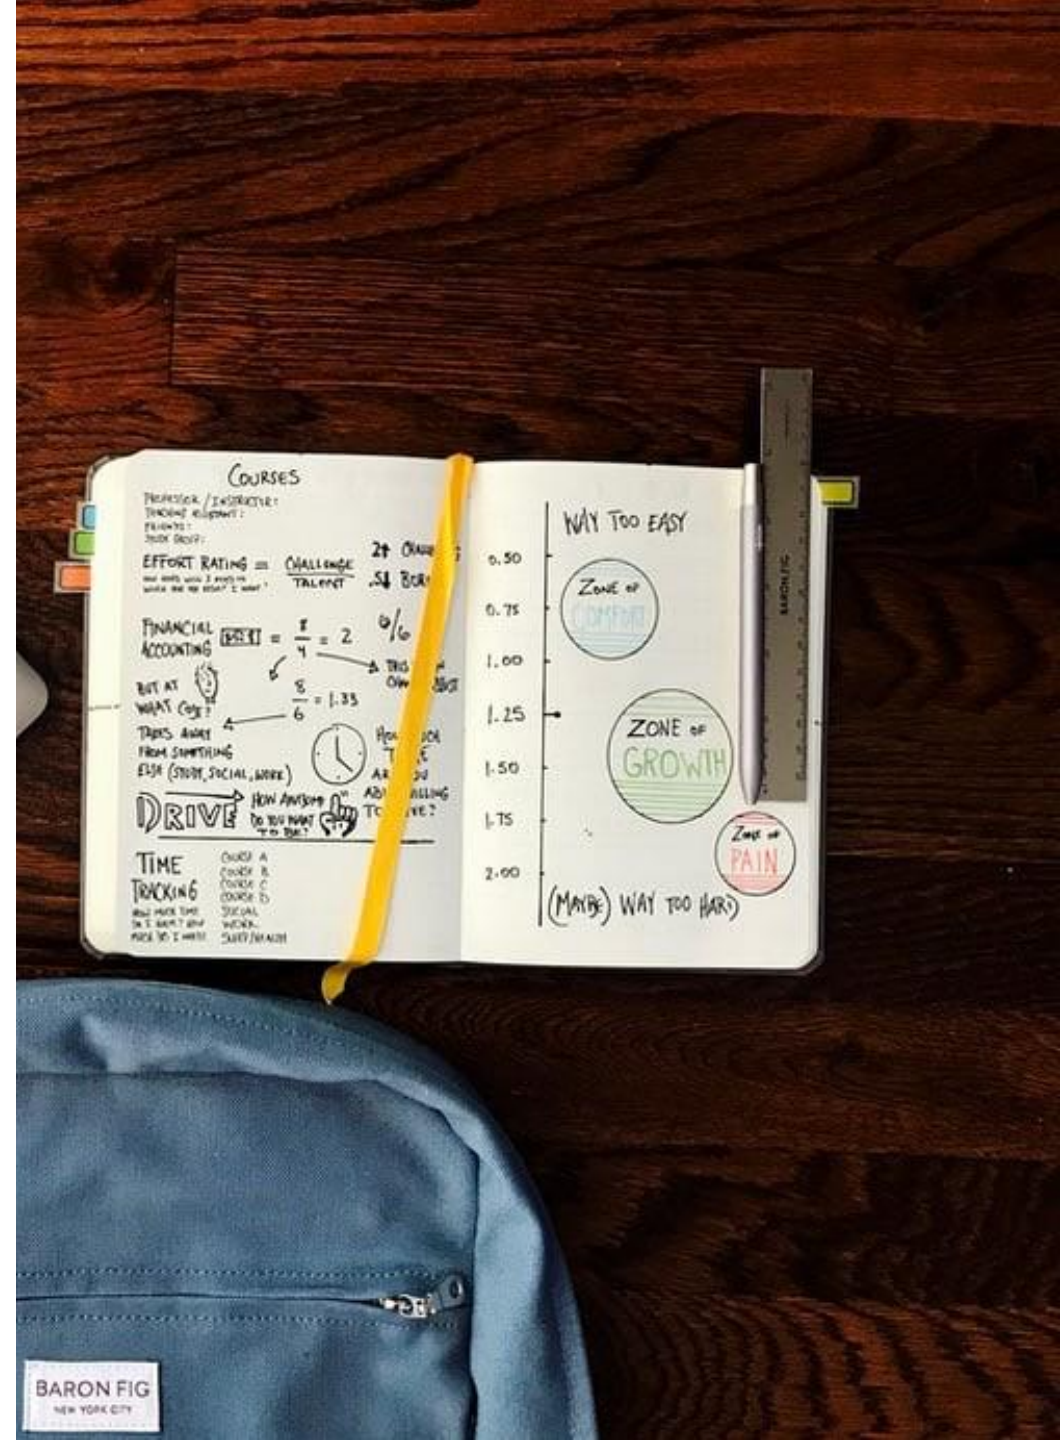 COURSES
PROFESSOR / INSTRUCTOR:
TEACHING ASSISTANT:
FRIENDS:
STUDY GROUP:
EFFORT RATING = CHALLENGE
TALENT
2↑
.5↓
FINANCIAL
ACCOUNTING
= 8/4 = 2
6/6
BUT AT
WHAT COST?
8/6 = 1.33
THIS
TAKES AWAY
FROM SOMETHING
ELSE (STUDY, SOCIAL, WORK)
DRIVE
HOW AWESOME
DO YOU WANT
TO BE?
TIME
TRACKING
HOW MUCH TIME
DO I HAVE? HOW
MUCH DO I WANT?
COURSE A
COURSE B
COURSE C
COURSE D
SOCIAL
WORK
SLEEP/HEALTH
WAY TOO EASY
0.50
0.75
1.00
1.25
1.50
1.75
2.00
ZONE OF
COMFORT
ZONE OF
GROWTH
ZONE OF
PAIN
(MAYBE) WAY TOO HARD
BARON FIG
BARON FIG
NEW YORK CITY